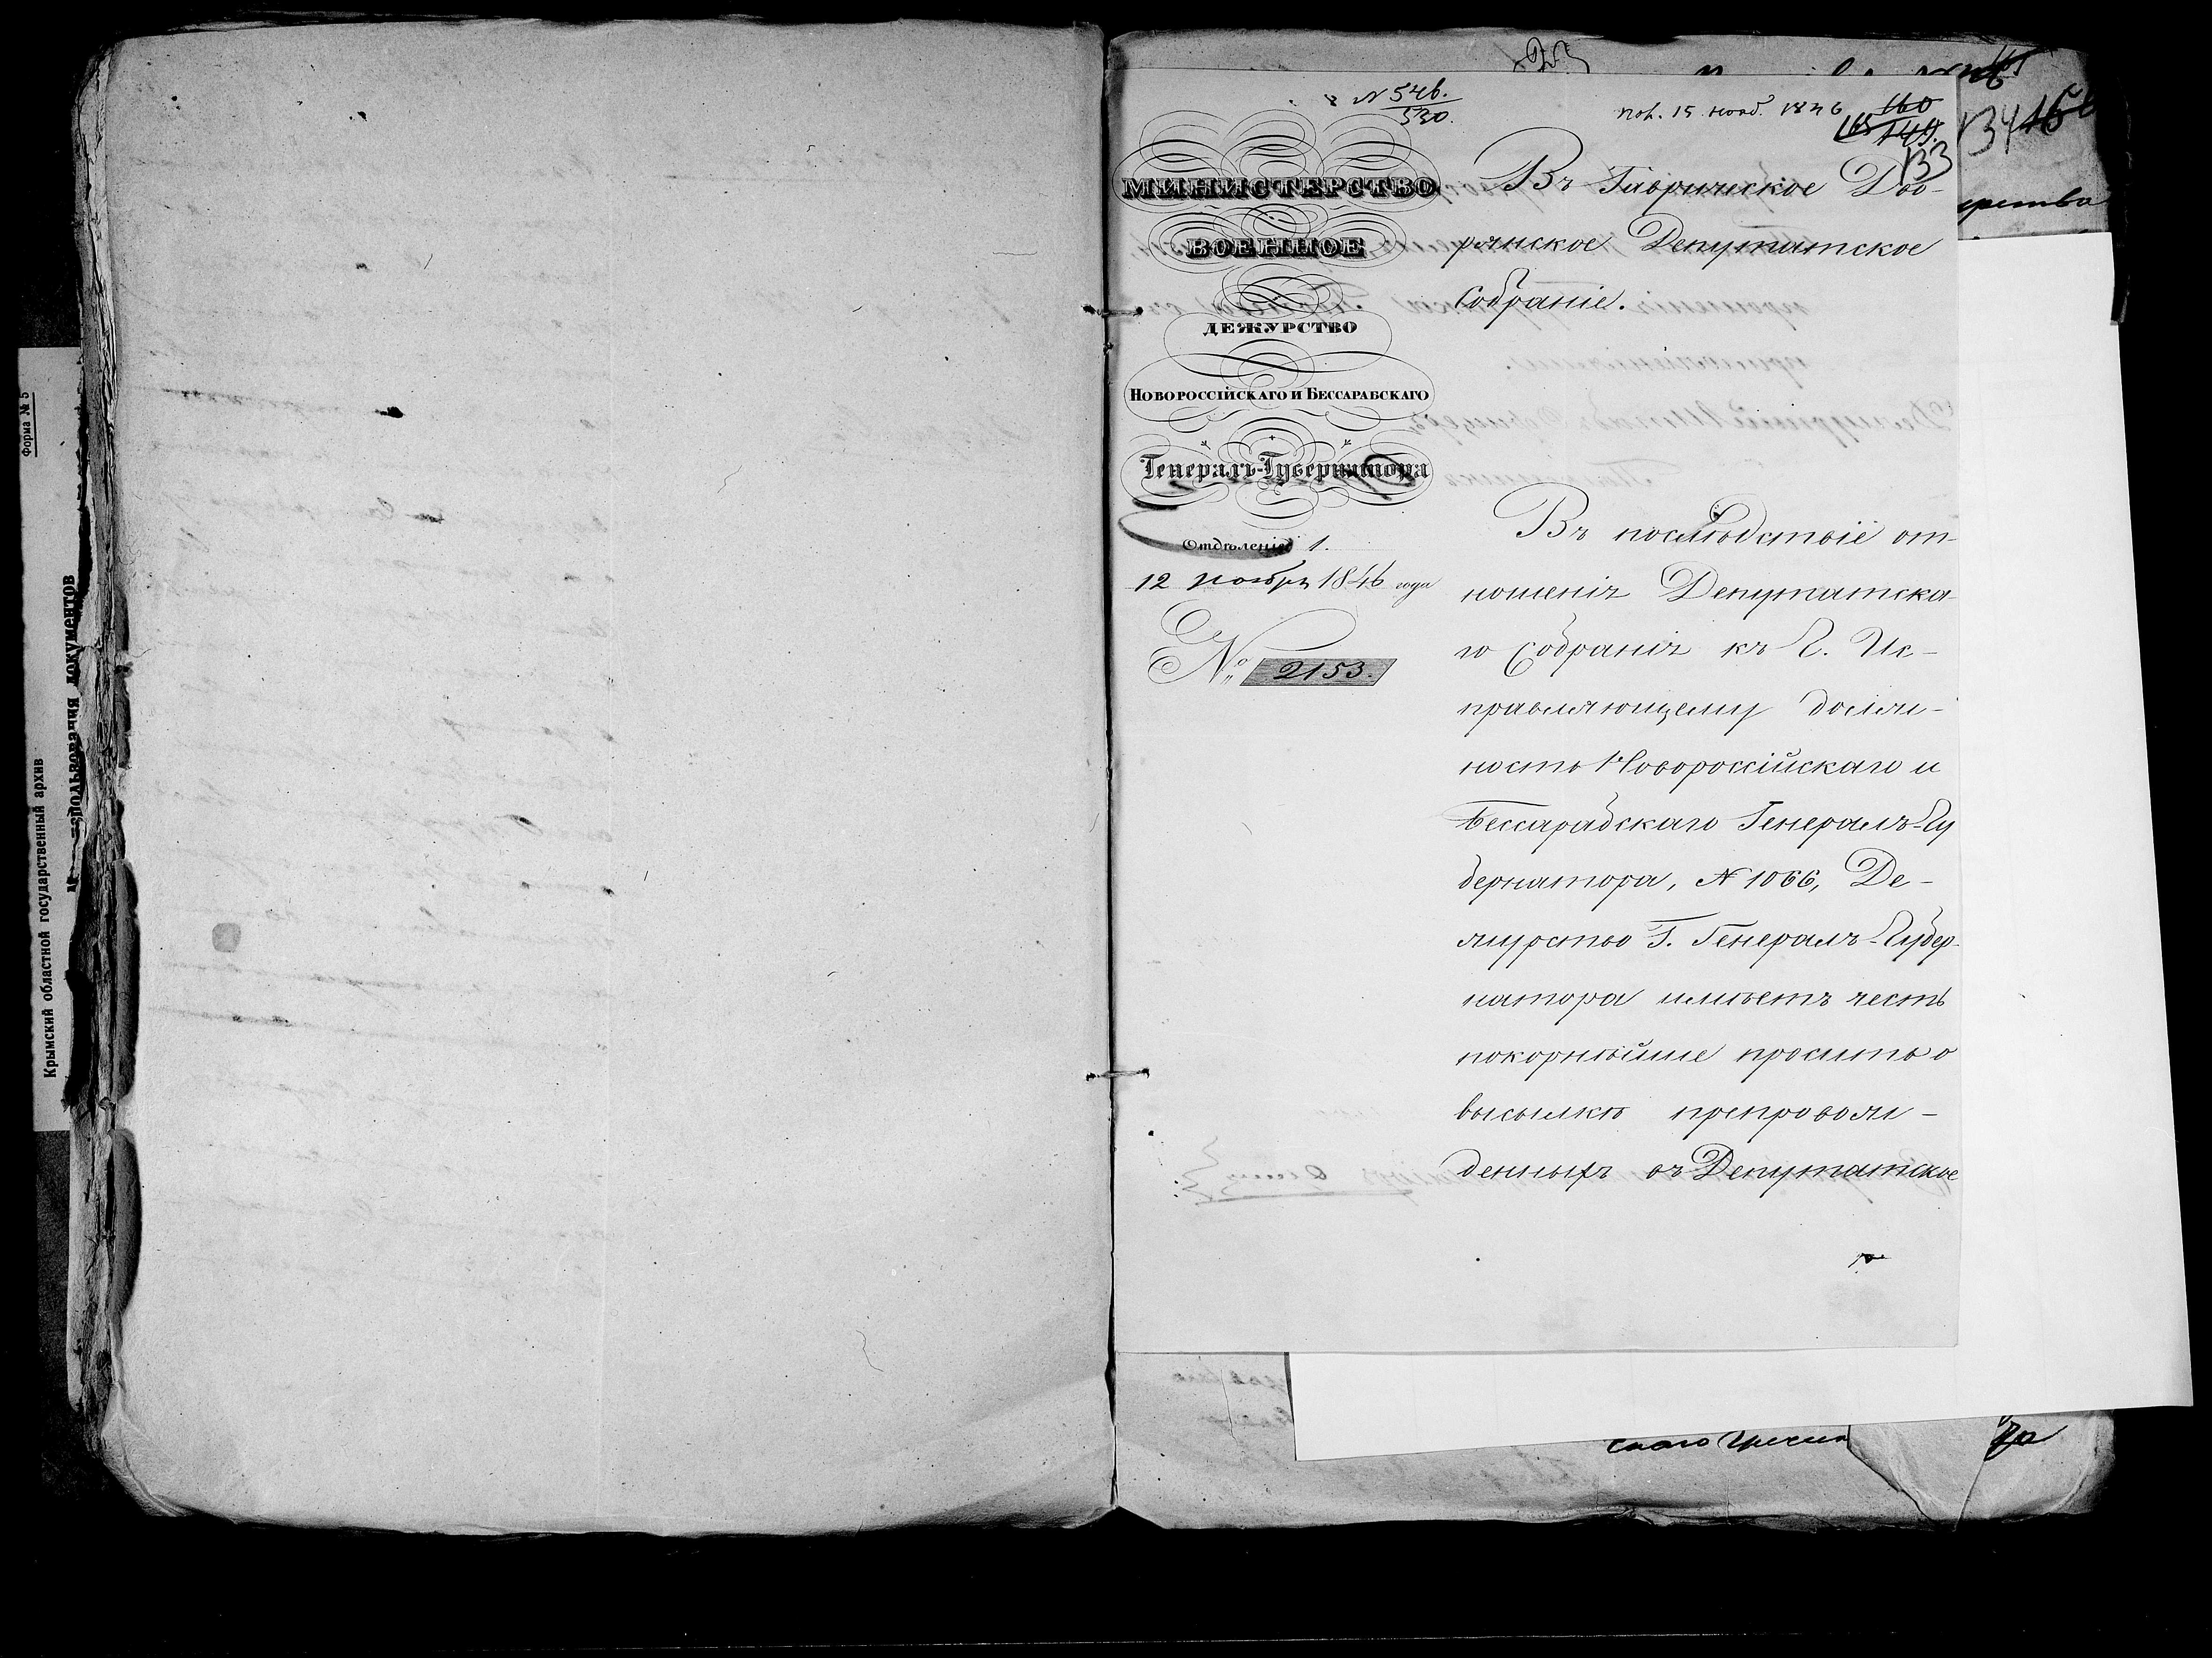 Форма № 5
Крымский областной государственный архив
использования документов
N 546.
530.
пол. 15 нояб. 1846
160
165 149.
133
134
МИНИСТЕРСТВО
ВОЕННОЕ
ДЕЖУРСТВО
НОВОРОССІЙСКАГО И БЕССАРАБСКАГО
Генералъ-Губернатора
Отдѣленіе 1.
12 Ноября 1846 года
№ 2153.
Въ Таврическое Дво-
рянское Депутатское
Собраніе.
Въ послѣдствіе от-
ношенія Депутатска-
го Собранія къ Г. Ис-
правляющему долж-
ность Новороссійскаго и
Бессарабскаго Генералъ-Гу
бернатора, N 1066, Де-
журство Г. Генералъ-Губер-
натора имѣетъ честь
покорнѣйше просить о
высылкѣ препровож-
денныхъ въ Депутатское